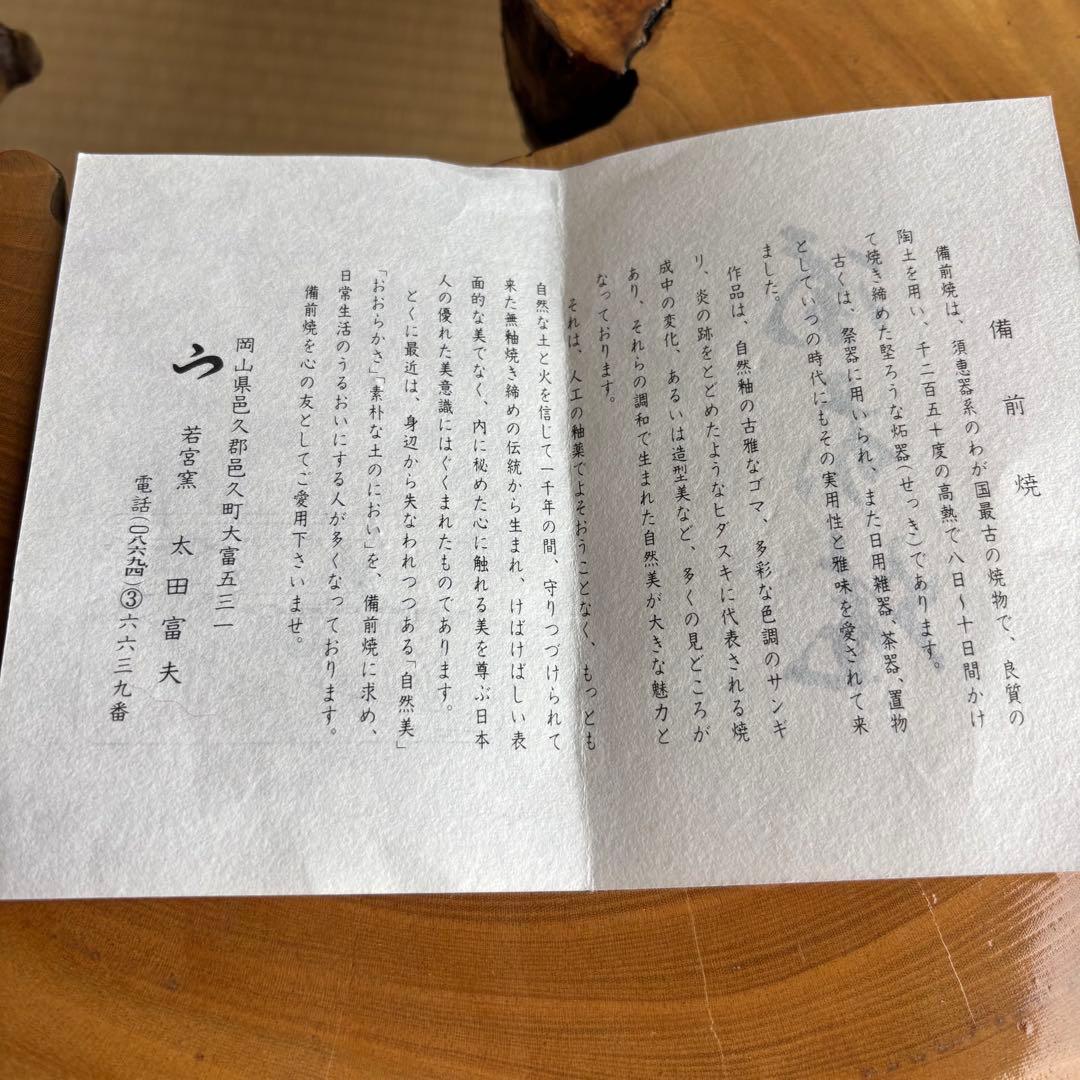 備前焼
備前焼は、須恵器系のわが国最古の焼物で、良質の
陶土を用い、千二百五十度の高熱で八日〜十日間かけ
て焼き締めた堅ろうな炻器(せっき)であります。
古くは、祭器に用いられ、また日用雑器、茶器、置物
としていつの時代にもその実用性と雅味を愛されて来
ました。
作品は、自然釉の古雅なゴマ、多彩な色調のサンギ
リ、炎の跡をとどめたようなヒダスキに代表される焼
成中の変化、あるいは造型美など、多くの見どころが
あり、それらの調和で生まれた自然美が大きな魅力と
なっております。
それは、人工の釉薬でよそおうことなく、もっとも
自然な土と火を信じて一千年の間、守りつづけられて
来た無釉焼き締めの伝統から生まれ、けばけばしい表
面的な美でなく、内に秘めた心に触れる美を尊ぶ日本
人の優れた美意識にはぐくまれたものであります。
とくに最近は、身辺から失なわれつつある「自然美」
「おおらかさ」「素朴な土のにおい」を、備前焼に求め、
日常生活のうるおいにする人が多くなっております。
備前焼を心の友としてご愛用下さいませ。
岡山県邑久郡邑久町大富五三一
若宮窯 太田富夫
電話(〇八六九四)③六六三九番